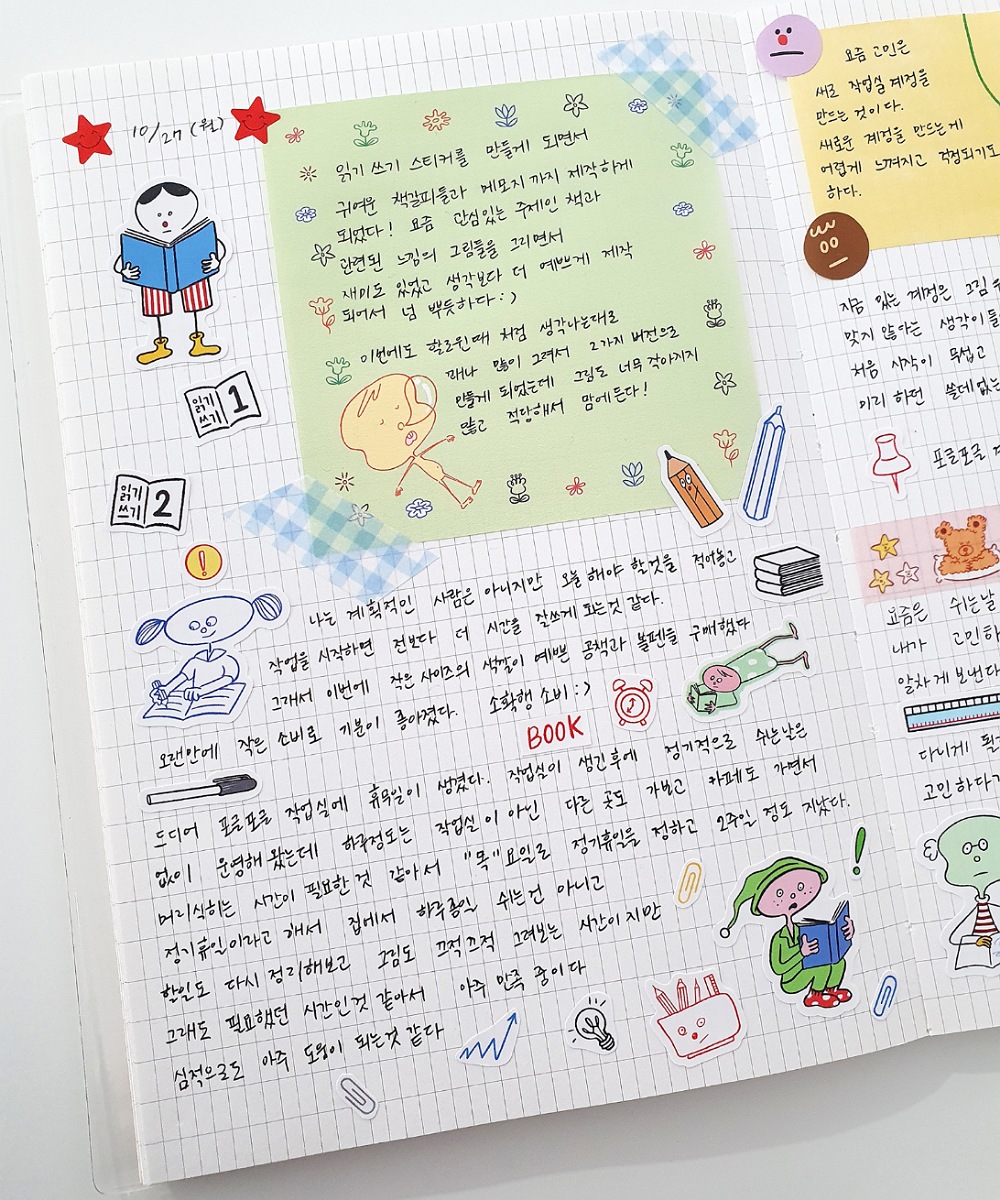 10/27 (월)
읽기 쓰기 스티커를 만들게 되면서
귀여운 책갈피들과 메모지까지 제작하게
되었다! 요즘 관심있는 주제인 책과
관련된 느낌의 그림들을 그리면서
재미도 있었고 생각보다 더 예쁘게 제작
되어서 넘 뿌듯하다 :)
이번에도 할로윈때 처럼 생각나는대로
꽤나 많이 그려서 2가지 버전으로
만들게 되었는데 그림도 너무 작아지지
않고 적당해서 맘에든다!
읽기 쓰기 1
읽기 쓰기 2
!
나는 계획적인 사람은 아니지만 오늘 해야 할것을 적어놓고
작업을 시작하면 전보다 더 시간을 잘쓰게 되는것 같다.
그래서 이번에 작은 사이즈의 색깔이 예쁜 공책과 볼펜을 구매했다
오랜만에 작은 소비로 기분이 좋아졌다. 소확행 소비 :)
BOOK
드디어 포클포클 작업실에 휴무일이 생겼다. 작업실이 생긴후에 정기적으로 쉬는날은
없이 운영해 왔는데 하루정도는 작업실이 아닌 다른 곳도 가보고 카페도 가면서
머리식히는 시간이 필요한것 같아서 "목"요일로 정기휴일을 정하고 2주일 정도 지났다.
정기휴일이라고 해서 집에서 하루종일 쉬는건 아니고
할일도 다시 정리해보고 그림도 끄적끄적 그려보는 시간이지만
그래도 필요했던 시간인것 같아서 아주 만족 중이다
심적으로도 아주 도움이 되는것 같다
!
요즘 고민은
새로 작업실 계정을
만드는 것이다.
새로운 계정을 만드는게
어렵게 느껴지고 걱정되기도
하다.
지금 있는 계정은 그림
맞지 않아는 생각이
처음 시작이 무섭고
미리 하던 쓸데없는
포클포클
요즘은 쉬는날
내가 고민하
알차게 보낸다
다니게 될
고민하다가